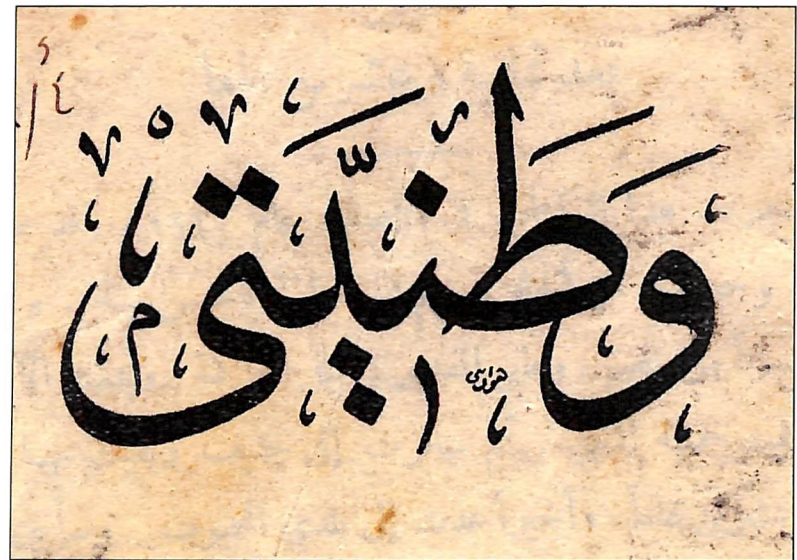 وَطَنيَّتى